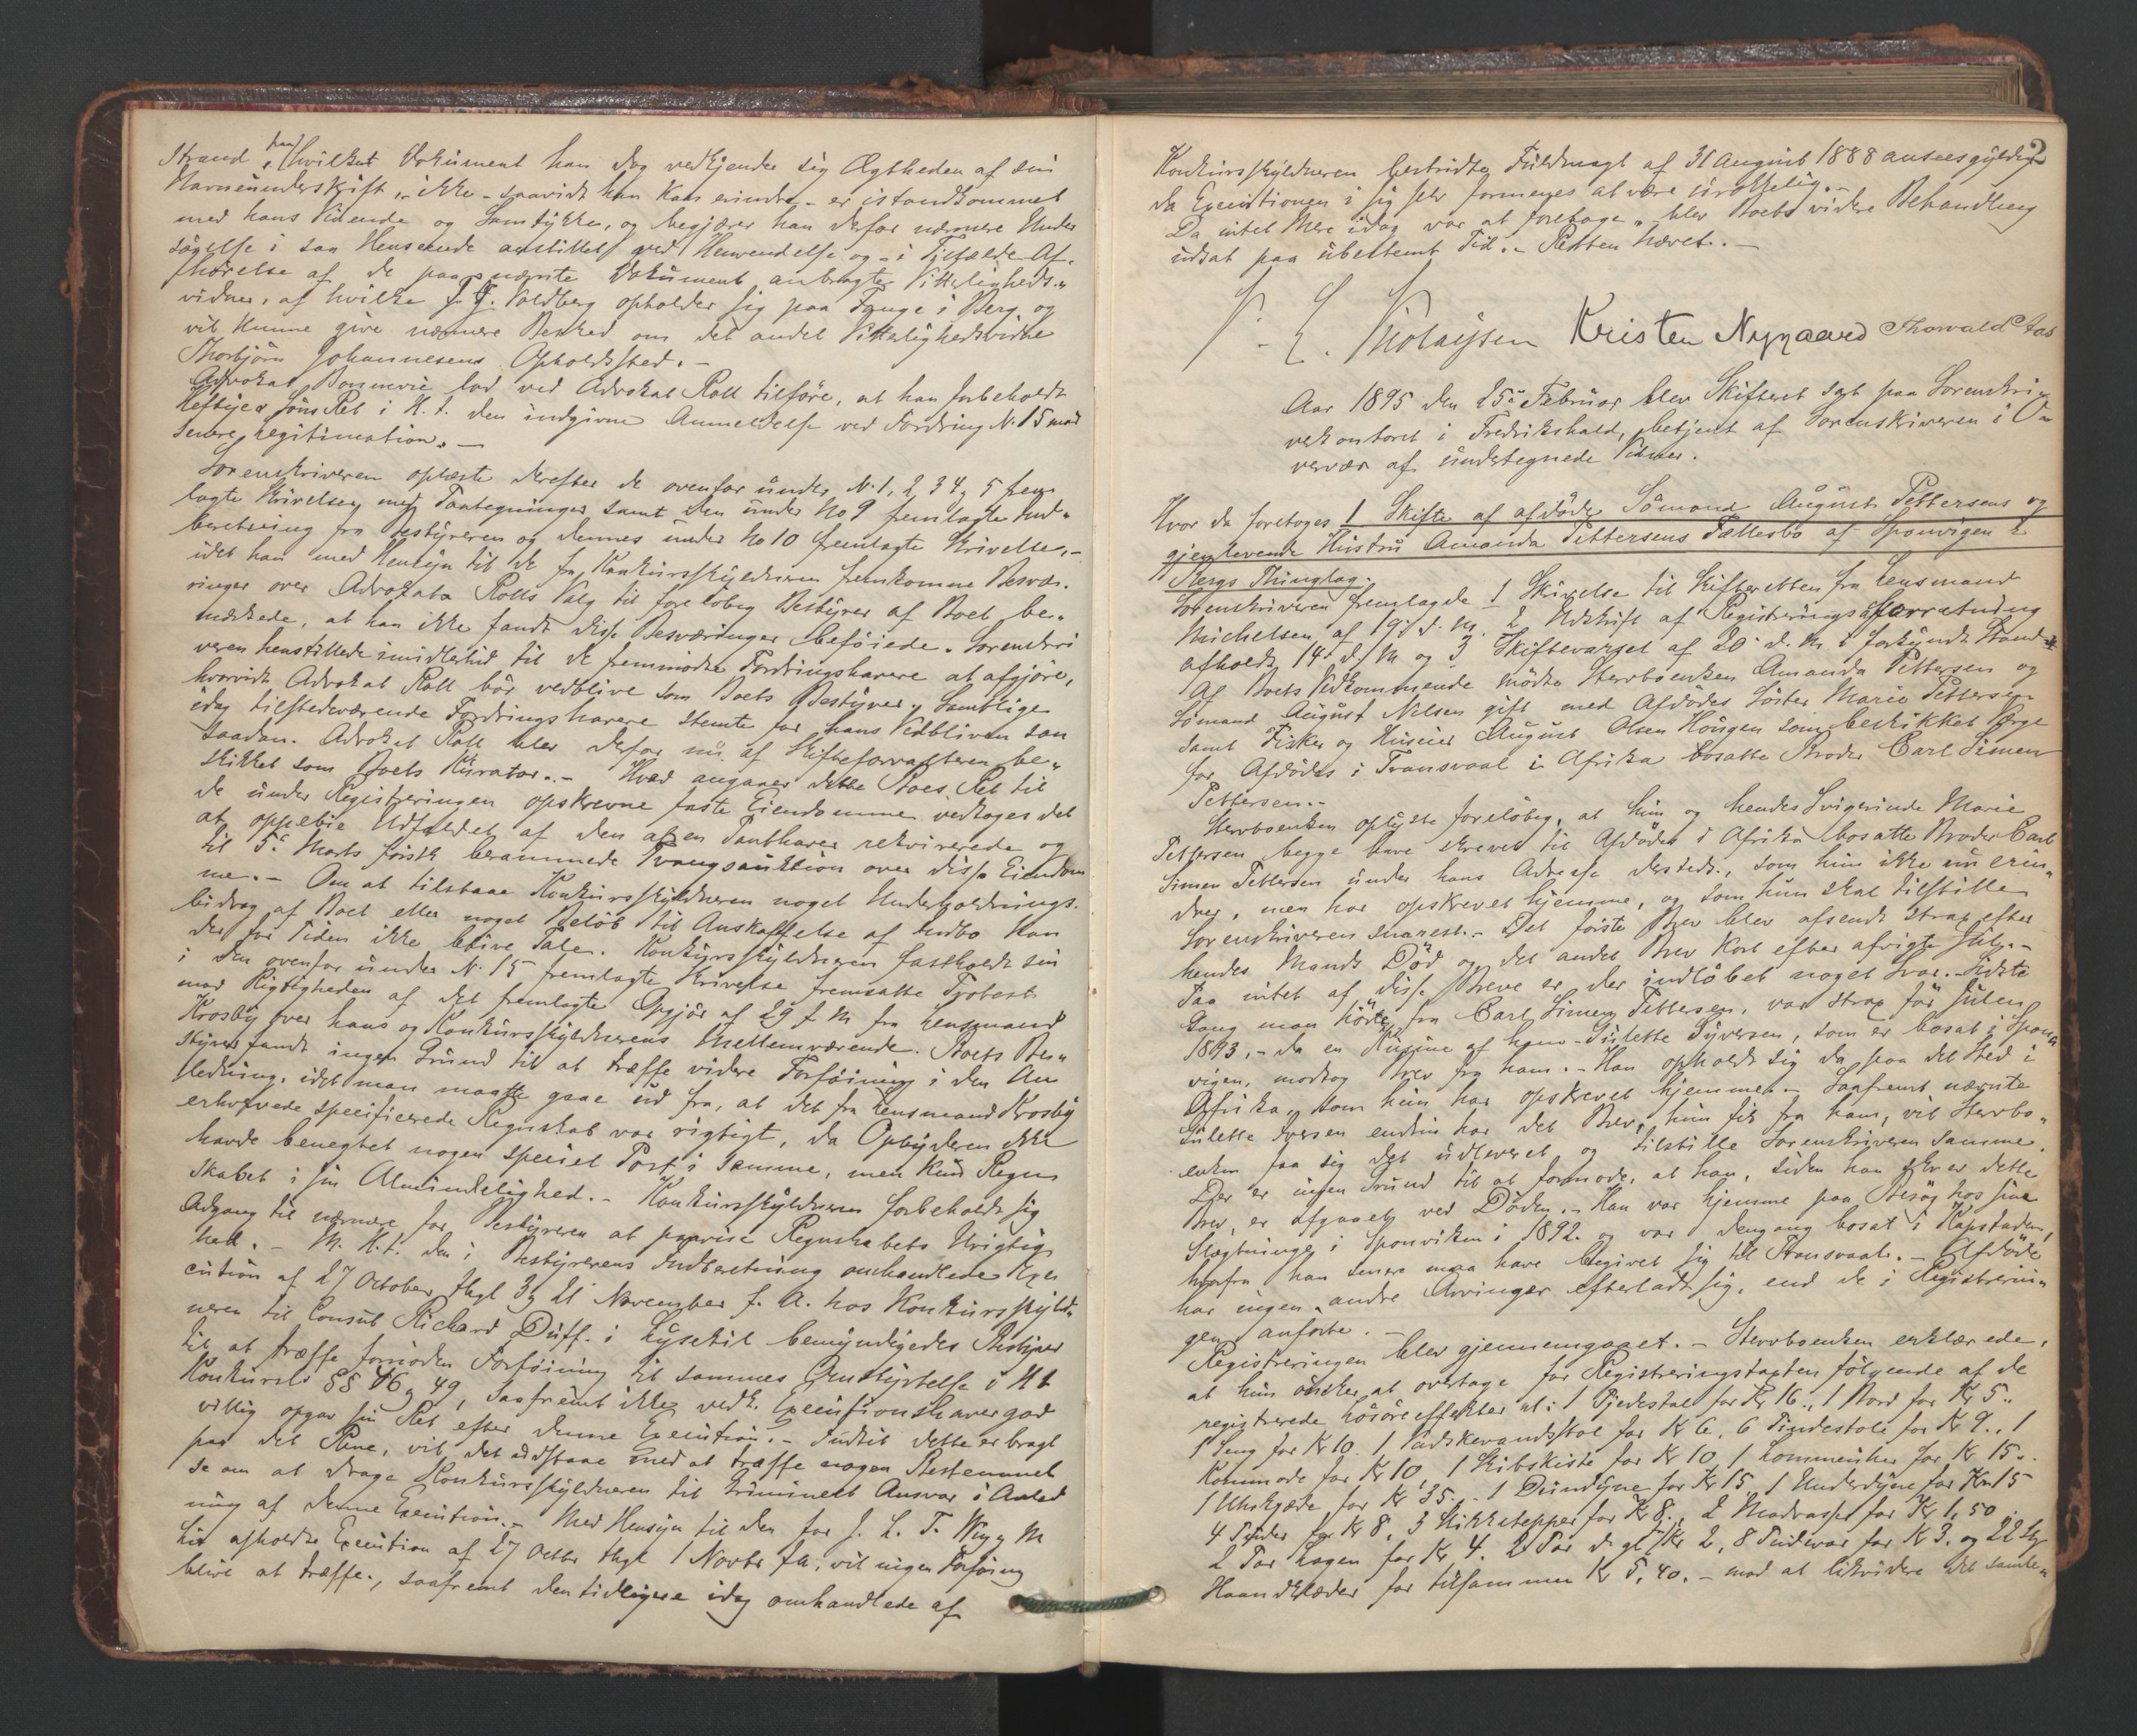 Strand, paa hvilket Dokument han dog vedkjender sig Ægtheden af sin
Navneunderskrift, ikke - saavidt han kan erindre - er istandkommet
med hans Vidende og Samtykke, og begjærer han derfor nærmere Under
søgelse i saa Henseende anstillet ved Henvendelse og - i Tilfælde Af-
hørelse af de paa nævnte Dokument anbragte Vitterligheds-
vidner, af hvilke J. G. Voldberg opholder sig paa Tange i Berg og
vil kunne give nærmere Besked om det andet Vitterlighedsvidne
Thorbjørn Johannesens Opholdssted. -
Advokat Bonnevie lod ved Advokat Roll tilføre, at han forbeholdt
Heftye & Søns Ret i H. t. den indgivne Anmeldelse ved Fordring N. 15 mod
senere legitimation. -
Sorenskriveren oplæste derefter de ovenfor under N. 1, 2, 3, 4, 5 frem
lagte Skrivelser med Paategninger samt den under No 9 fremlagte Ind-
beretning fra Bestyreren og dennes under No 10 fremlagte Skrivelse, -
idet han med Hensyn til de fra Konkursskyldneren fremkomne Besvæ-
ringer over Advokat Rolls Valg til foreløbig Bestyrer af Boet be-
mærkede, at han ikke fandt disse Besværinger beføiede. Sorenskri
veren henstillede imidlertid til de fremmødte Fordringshavere at afgjøre,
hvorvidt Advokat Roll bør vedblive som Boets Bestyrer. Samtlige
idag tilstedeværende Fordringshavere stemte for hans Vedbliven som
saadan. Advokat Roll blev derfor nu af Skifteforvalteren be-
skikket som Boets Kurator. - Hvad angaaer dette Boes Ret til
de under Registreringen opskrevne faste Eiendomme vedtoges det
at oppebie Udfaldet af den af en Panthaver rekvirerede og
til 5. Marts førstk berammede Tvangsauktion over disse Eiendom
me. - Om at tilstaae Konkursskyldneren noget Underholdnings-
bidrag af Boet eller noget Beløb til Anskaffelse af Indbo kan
der for Tiden ikke blive Tale. Konkursskyldneren fastholdt sin
i den ovenfor under N. 15 fremlagte Skrivelse fremsatte Protest
mod Rigtigheden af det fremlagte Opgjør af 29 f M fra Lensmand
Krosby over hans og Konkursskyldnerens Mellemværende. Boets Be-
styrer fandt ingen Grund til at træffe videre Forføining i den An
ledning, idet man maatte gaae ud fra, at det fra Lensmand Krosby
erhvervede specificerede Regnskab var rigtigt, da Opbyderen ikke
havde benegtet nogen speciel Post i samme, men kun Regn
skabet i sin Almindelighed. - Konkursskyldneren forbeholdt sig
Adgang til nærmere for Bestyreren at paavise Regnskabets Urigtig
hed. - M. H. t. den i Bestyrerens Indberetning omhandlede Exe
cution af 27 October thgl 3 & 21 November f. A. hos Konkursskyld-
neren til Consul Richard Duff i Lysekil bemyndigedes Bestyrer
til at træffe fornøden Forføining til sammes Omstyrtelse i H t
Konkursl. §§ 46 & 49, saafremt ikke vedk. Executionshaver god
villig opgav sin Ret efter denne Execution. - Indtil dette er bragt
paa det Rene, vil det udstaae med at træffe nogen Bestemmel
se om at drage Konkursskyldneren til kriminelt Ansvar i Anled
ning af denne Execution. - Med Hensyn til den for J. L. T.
hir afholdte Execution af 27 Octbr thgl 1 Novbr f A. vil ingen Forføining
blive at træffe, saafremt den tidligere idag omhandlede af
2
Konkursskyldneren bestridte Fuldmagt af 31 August 1888 ansees gyldig
da Executionen i sig selv formenes at være uvoltelig. -
Da intet Mere idag var at foretage, blev Boets videre Behandling
udsat paa ubestemt Tid. - Retten hævet. -
Kristen Nygaard Thorvald Aas
Aar 1895 den 25. Februar blev Skifteret sat paa Sorenskri-
verkontoret i Fredrikshald, betjent af Sorenskriveren i O-
vervær af undertegnede Vidner.
Hvor da foretoges 1 Skifte af afdøde Sømand August Pettersens og
gjenlevende Hustru Amanda Pettersens Fællesbo af Sponvigen i
Bergs Thinglag.
Sorenskriveren fremlagde 1 Skrivelse til Skifteretten fra Lensmand
Michelsen af 19. d. M. 2 Udskrift af Registreringsforretning
afholdt 14. d. M og 3 Skiftevarsel af 20. d. M. forkyndt
Af Boets Vedkommende mødte Stervboenken Amanda Pettersen og
Sømand August Nilsen gift med Afdødes Søster Marie Pettersen
samt Fisker og Huseier August Olsen Hougen som beskikket Værge
for Afdødes i Transvaal i Afrika bosatte Broder Carl Simen
Pettersen. -
Stervboenken oplyste foreløbig, at hun og hendes Svigerinde Marie
Pettersen begge have skrevet til Afdødes i Afrika bosatte Broder Carl
Simen Pettersen under hans Adresse dersteds, som hun ikke nu erin-
drer, men har opskrevet hjemme, og som hun skal tilstille
Sorenskriveren snarest. - Det første Brev blev afsendt strax efter
hendes Mands Død og det andet Brev kort efter afvigte Jul. -
Paa intet af disse Breve er der indløbet noget Svar. - Sidste
Gang man hørte fra Carl Simen Pettersen, var strax før Julen
1893, - da en Kusine af ham - Julette Syversen, som er bosat i Spon-
vigen, modtog Brev fra ham. - Han opholdt sig da paa det Sted i
Afrika, som hun har opskrevet hjemme. - Saafremt nævnte
Julette Iversen endnu har det Brev, hun fik fra ham, vil Stervbo-
enken faa sig det udleveret og tilstille Sorenskriveren samme.
Der er ingen Grund til at formode, at han, siden han skrev dette
Brev, er afgaaet ved Døden. - Han var hjemme paa Besøg hos sine
Slægtninge i Sponviken i 1892 og var dengang bosat i Kapstaden,
hvorfra han senere maa have begivet sig til Transvaal. - Afdøde
har ingen andre Arvinger efterladt sig, end de i Registrerin-
gen anførte. -
Registreringen blev gjennemgaaet. - Stervboenken erklærede,
at hun ønsker at overtage for Registreringstaxten følgende af de
registrerede Løsøreeffekter nl: 1 Pjedestal for Kr 16., 1 Bord for Kr 5.,
1 Seng for Kr 10. 1 for Kr 6, 6 Pindestole for Kr 9., 1
Kommode for Kr 10, 1 Skibskiste for Kr 10, 1 Lommeuhr for Kr 15.,
1 Uhrkjæde for Kr 35. - 1 Dundyne for Kr 15, 1 Underdyne for Kr 15
4 Puder for Kr 8, 3 Stikketepper for Kr 8., 2 Madrasser for Kr 1,50
2 Par Lagen for Kr 4. 2 Par d. gl. Kr 2, 8 Pudevar for Kr 3. og 22 St
Haandklæder for tilsammen Kr 5,40. - mod at likvidere det samle-